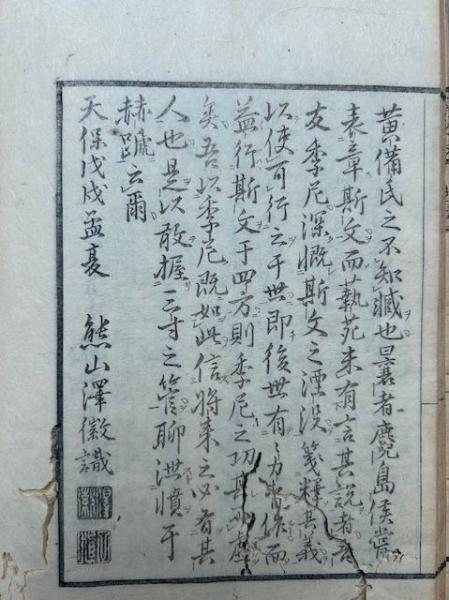 黄備氏之不知臧也曩者麑島侯嘗
表章斯文而藝苑未有言其説者吾
友季尼深慨斯文之湮没箋釋其義
以使可行之于世即後世有力者作而
益行斯文于四方則季尼之功其
矣吾以季尼既如此信將来之必有其
人也是以敢握三寸之管聊洩憤于
赫蹏云爾
天保戊戌孟夏
熊山澤徽識